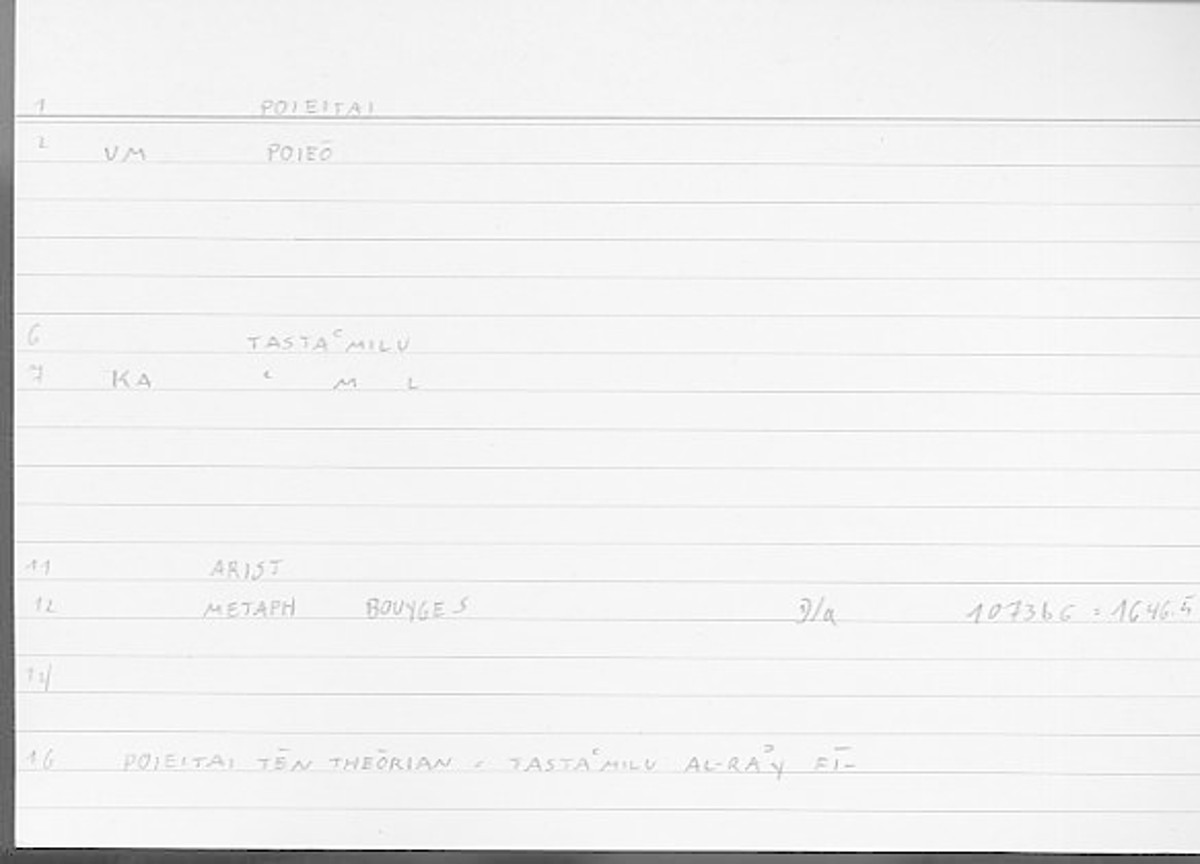 1 POIEITAI
2 VM POIEŌ
6 TASTAʿMILU
7 KA ʿ M L
11 ARIST
12 METAPH BOUYGES 1073b6 = 1646.5
14
16 POIEITAI TĒN THEŌRIAN = TASTAʿMILU AL-RAʾY FĪ-